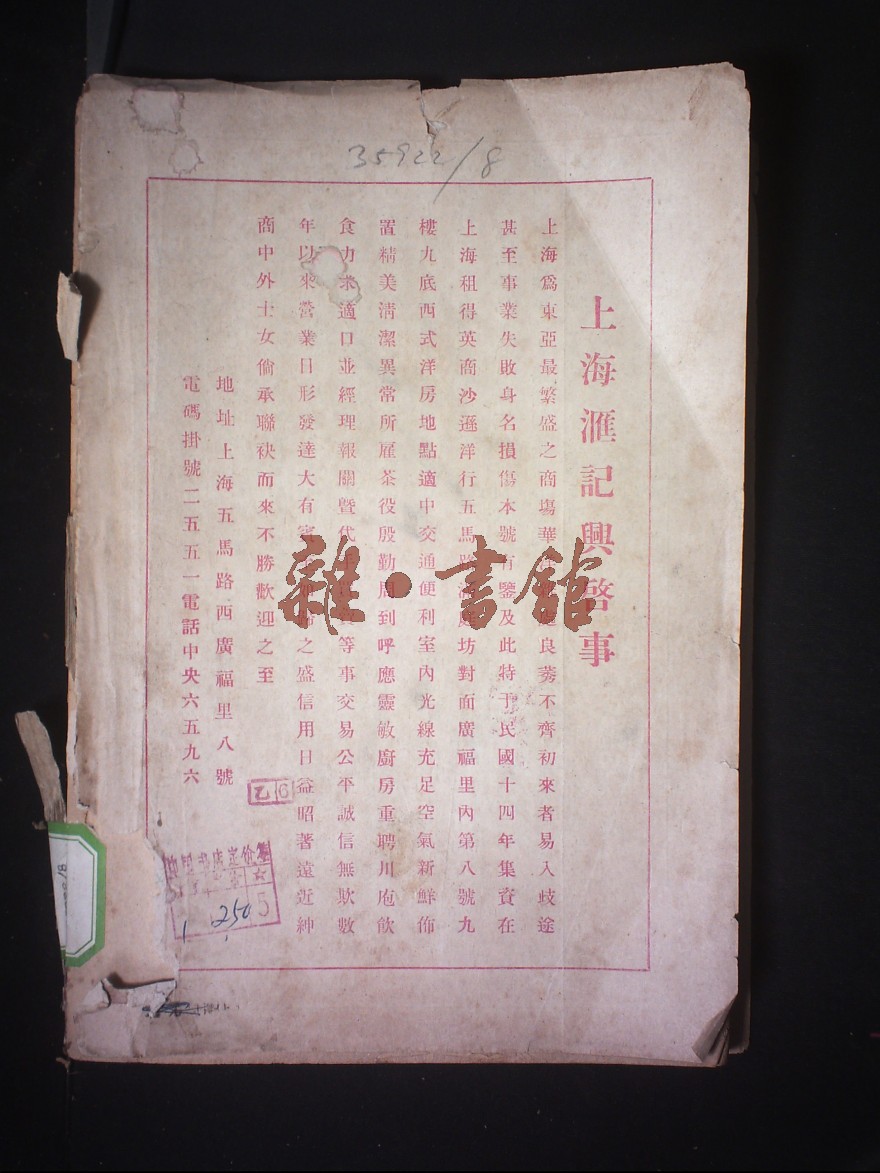 35922/8
上海滙記興啓事
上海爲東亞最繁盛之商塲華良莠不齊初來者易入歧途
甚至事業失敗身名損傷本號有鑒及此特于民國十四年集資在
上海租得英商沙遜洋行五馬路坊對面廣福里內第八號九
樓九底西式洋房地點適中交通便利室內光線充足空氣新鮮佈
置精美淸潔異常所雇茶役殷勤周到呼應靈敏廚房重聘川庖飲
食力求適口並經理報關曁代等事交易公平誠信無欺數
年以來營業日形發達大有賓之盛信用日益昭著遠近紳
商中外士女倘承聯袂而來不勝歡迎之至
地址上海五馬路西廣福里八號
電碼掛號二五五一電話中央六五九六
乙6
中国书店定价签
1 250
5
雜·書館